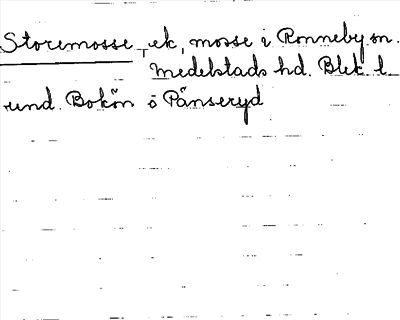 Storemosse, ek, mosse i Ronneby sn.
Medelstads hd. Blek. l.
und. Bökön ö Pånseryd